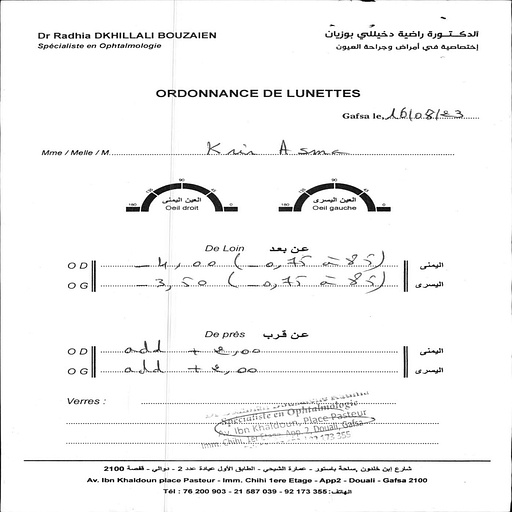 Dr Radhia DKHILLALI BOUZAIEN
Spécialiste en Ophtalmologie
الدكتورة راضية دخيللي بوزيان
إختصاصية في أمراض وجراحة العيون
ORDONNANCE DE LUNETTES
Gafsa le, 16/08/23
Mme / Melle / M. Krir Asma
180 135 90 45 0
العين اليمنى
Oeil droit
180 135 90 45 0
العين اليسرى
Oeil gauche
De Loin عن بعد
O D - 4,00 (- 0,75 à 85) اليمنى
O G - 3,50 (- 0,75 à 85) اليسرى
De près عن قرب
O D add + 2,00 اليمنى
O G add + 2,00 اليسرى
Verres :
Spécialiste en Ophtalmologie
Av. Ibn Khaldoun, Place Pasteur
Imm. Chihi, 1er Etage, App. 2, Douali, Gafsa
173 355
شارع إبن خلدون ,ساحة باستور - عمارة الشيحي - الطابق الأول عيادة عدد 2 - دوالي - قفصة 2100
Av. Ibn Khaldoun place Pasteur - Imm. Chihi 1ere Etage - App2 - Douali - Gafsa 2100
Tél : 76 200 903 - 21 587 039 - 92 173 355 :الهاتف